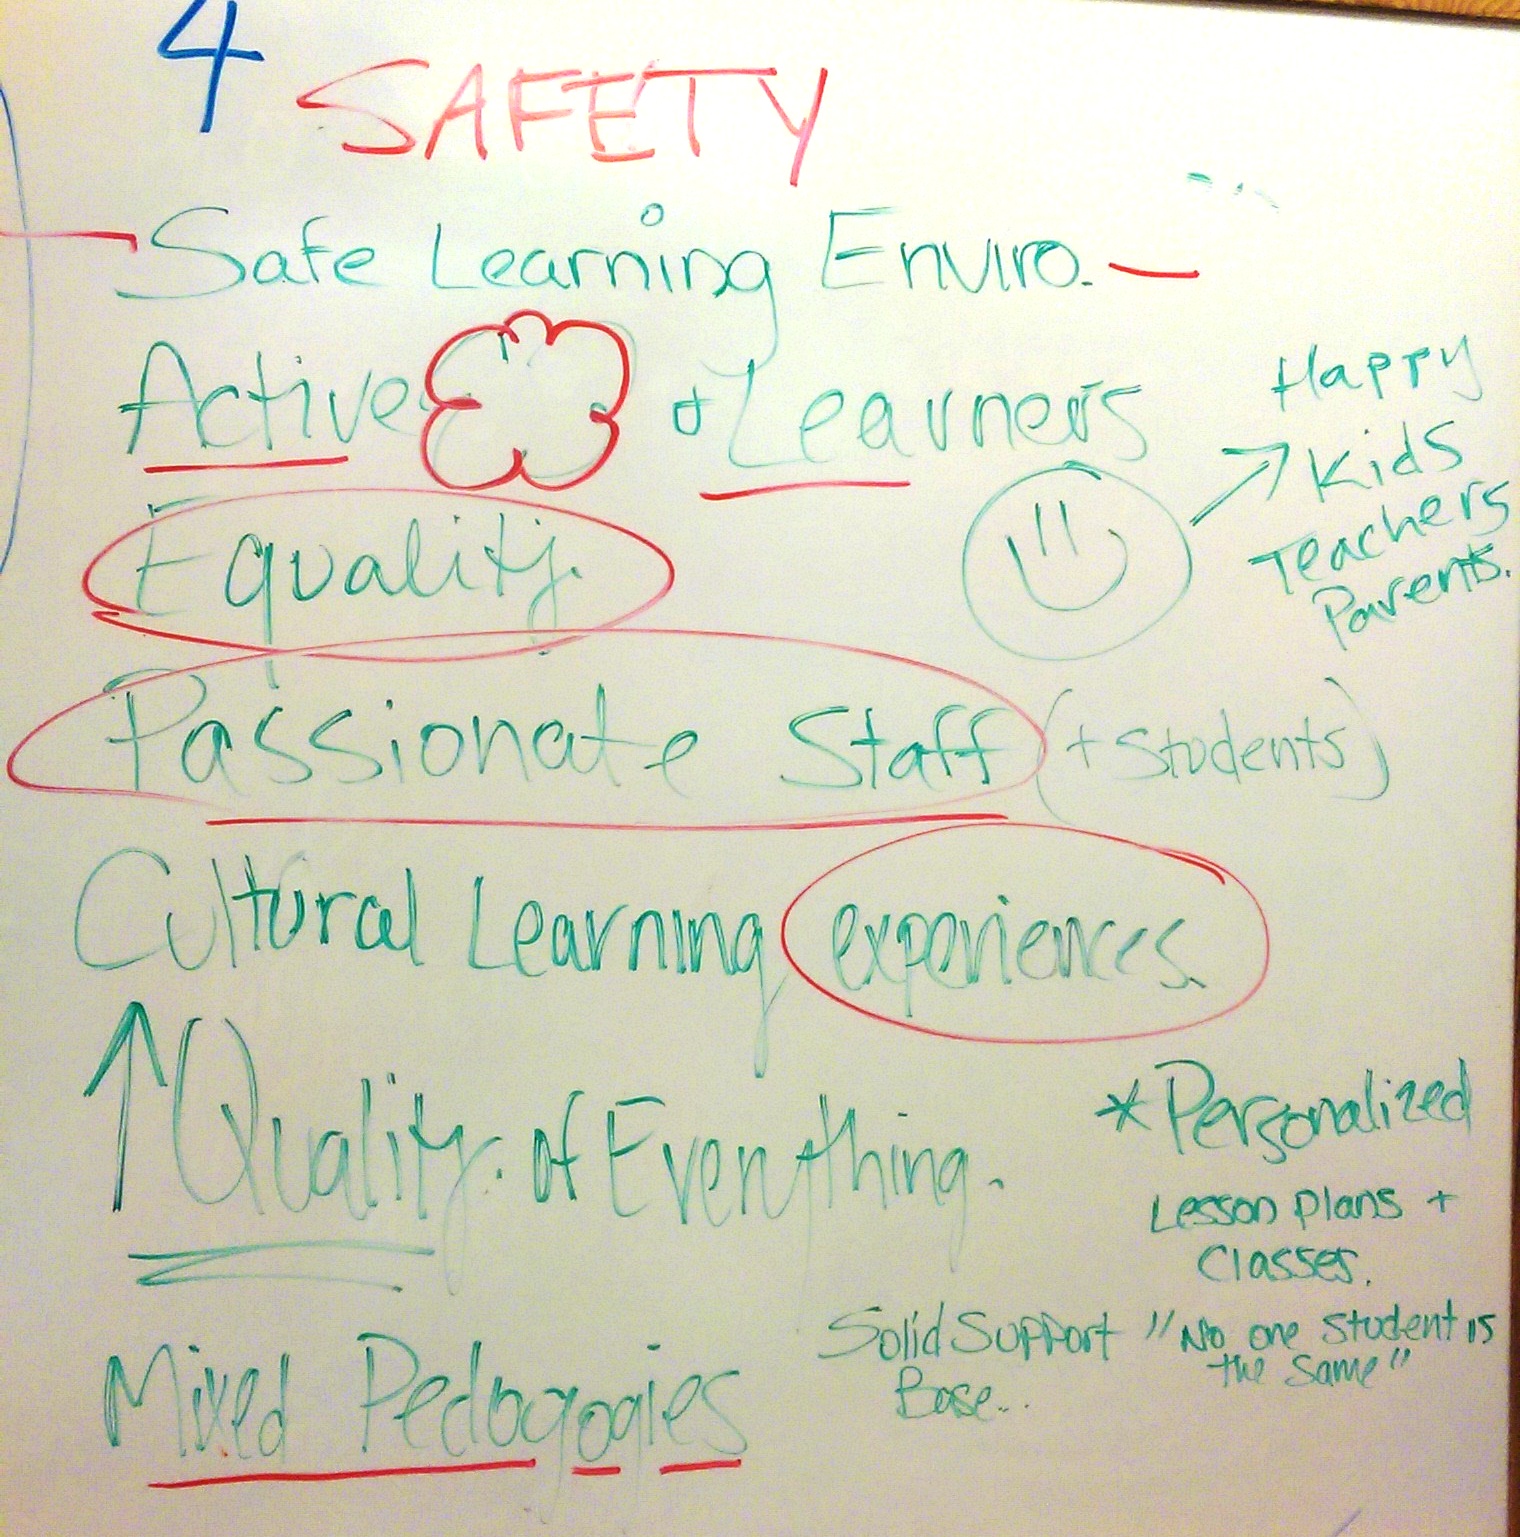 4
SAFETY
Safe Learning Enviro.
Active + Learners
Happy
Kids
Teachers
Parents.
Equality.
Passionate Staff (+ Students)
Cultural Learning experiences.
↑ Quality. of Everything.
* Personalized
Lesson plans +
Classes.
"No one student is
the same"
Solid Support
Base...
Mixed Pedogogies